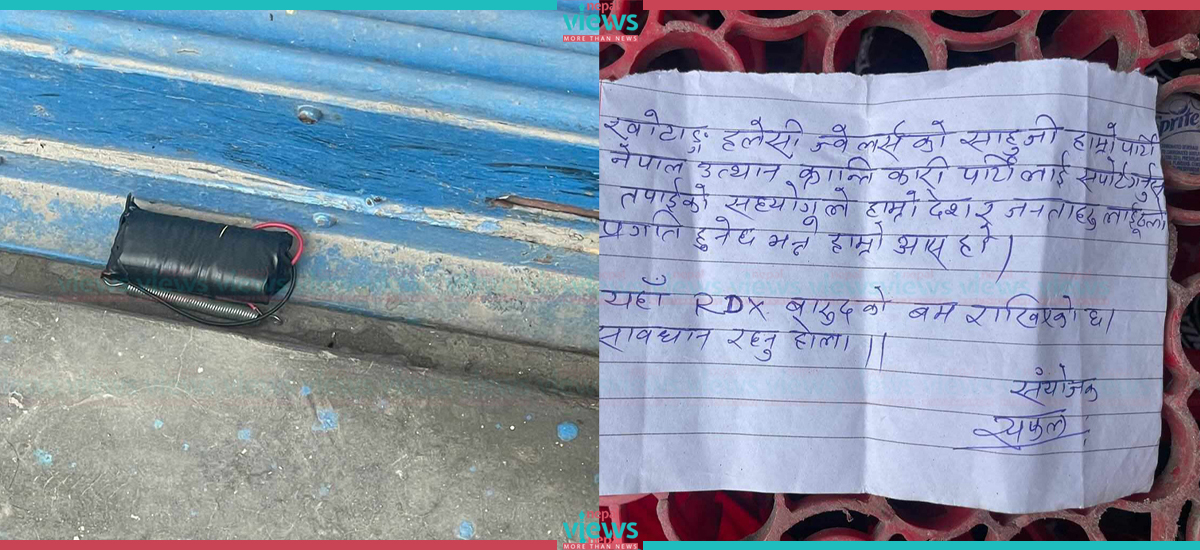 nepal
views
MORE THAN NEWS
खोटाङ्ग हलेसी ज्वेलर्स को साहुजी हाम्रो पार्टी
नेपाल उत्थान क्रान्तिकारी पार्टी लाई सपोर्ट गर्नुस
तपाईको सहयोगले हाम्रो देश र जनताहरु लाई ठुलो
प्रगति हुनेछ भन्ने हाम्रो आस् हो।
Sprite
यहाँ RDX बारुद को बम राखिएको छ।
सावधान रहनु होला ॥
संयोजक
nepal
views
MORE THAN NEWS